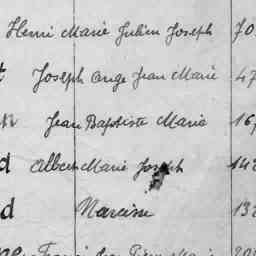 Henri Marie Julien Joseph 70
t Joseph Ange Jean Marie 47
n Jean Baptiste Marie 167
d Albert Marie Joseph 142
d Narcisse 132